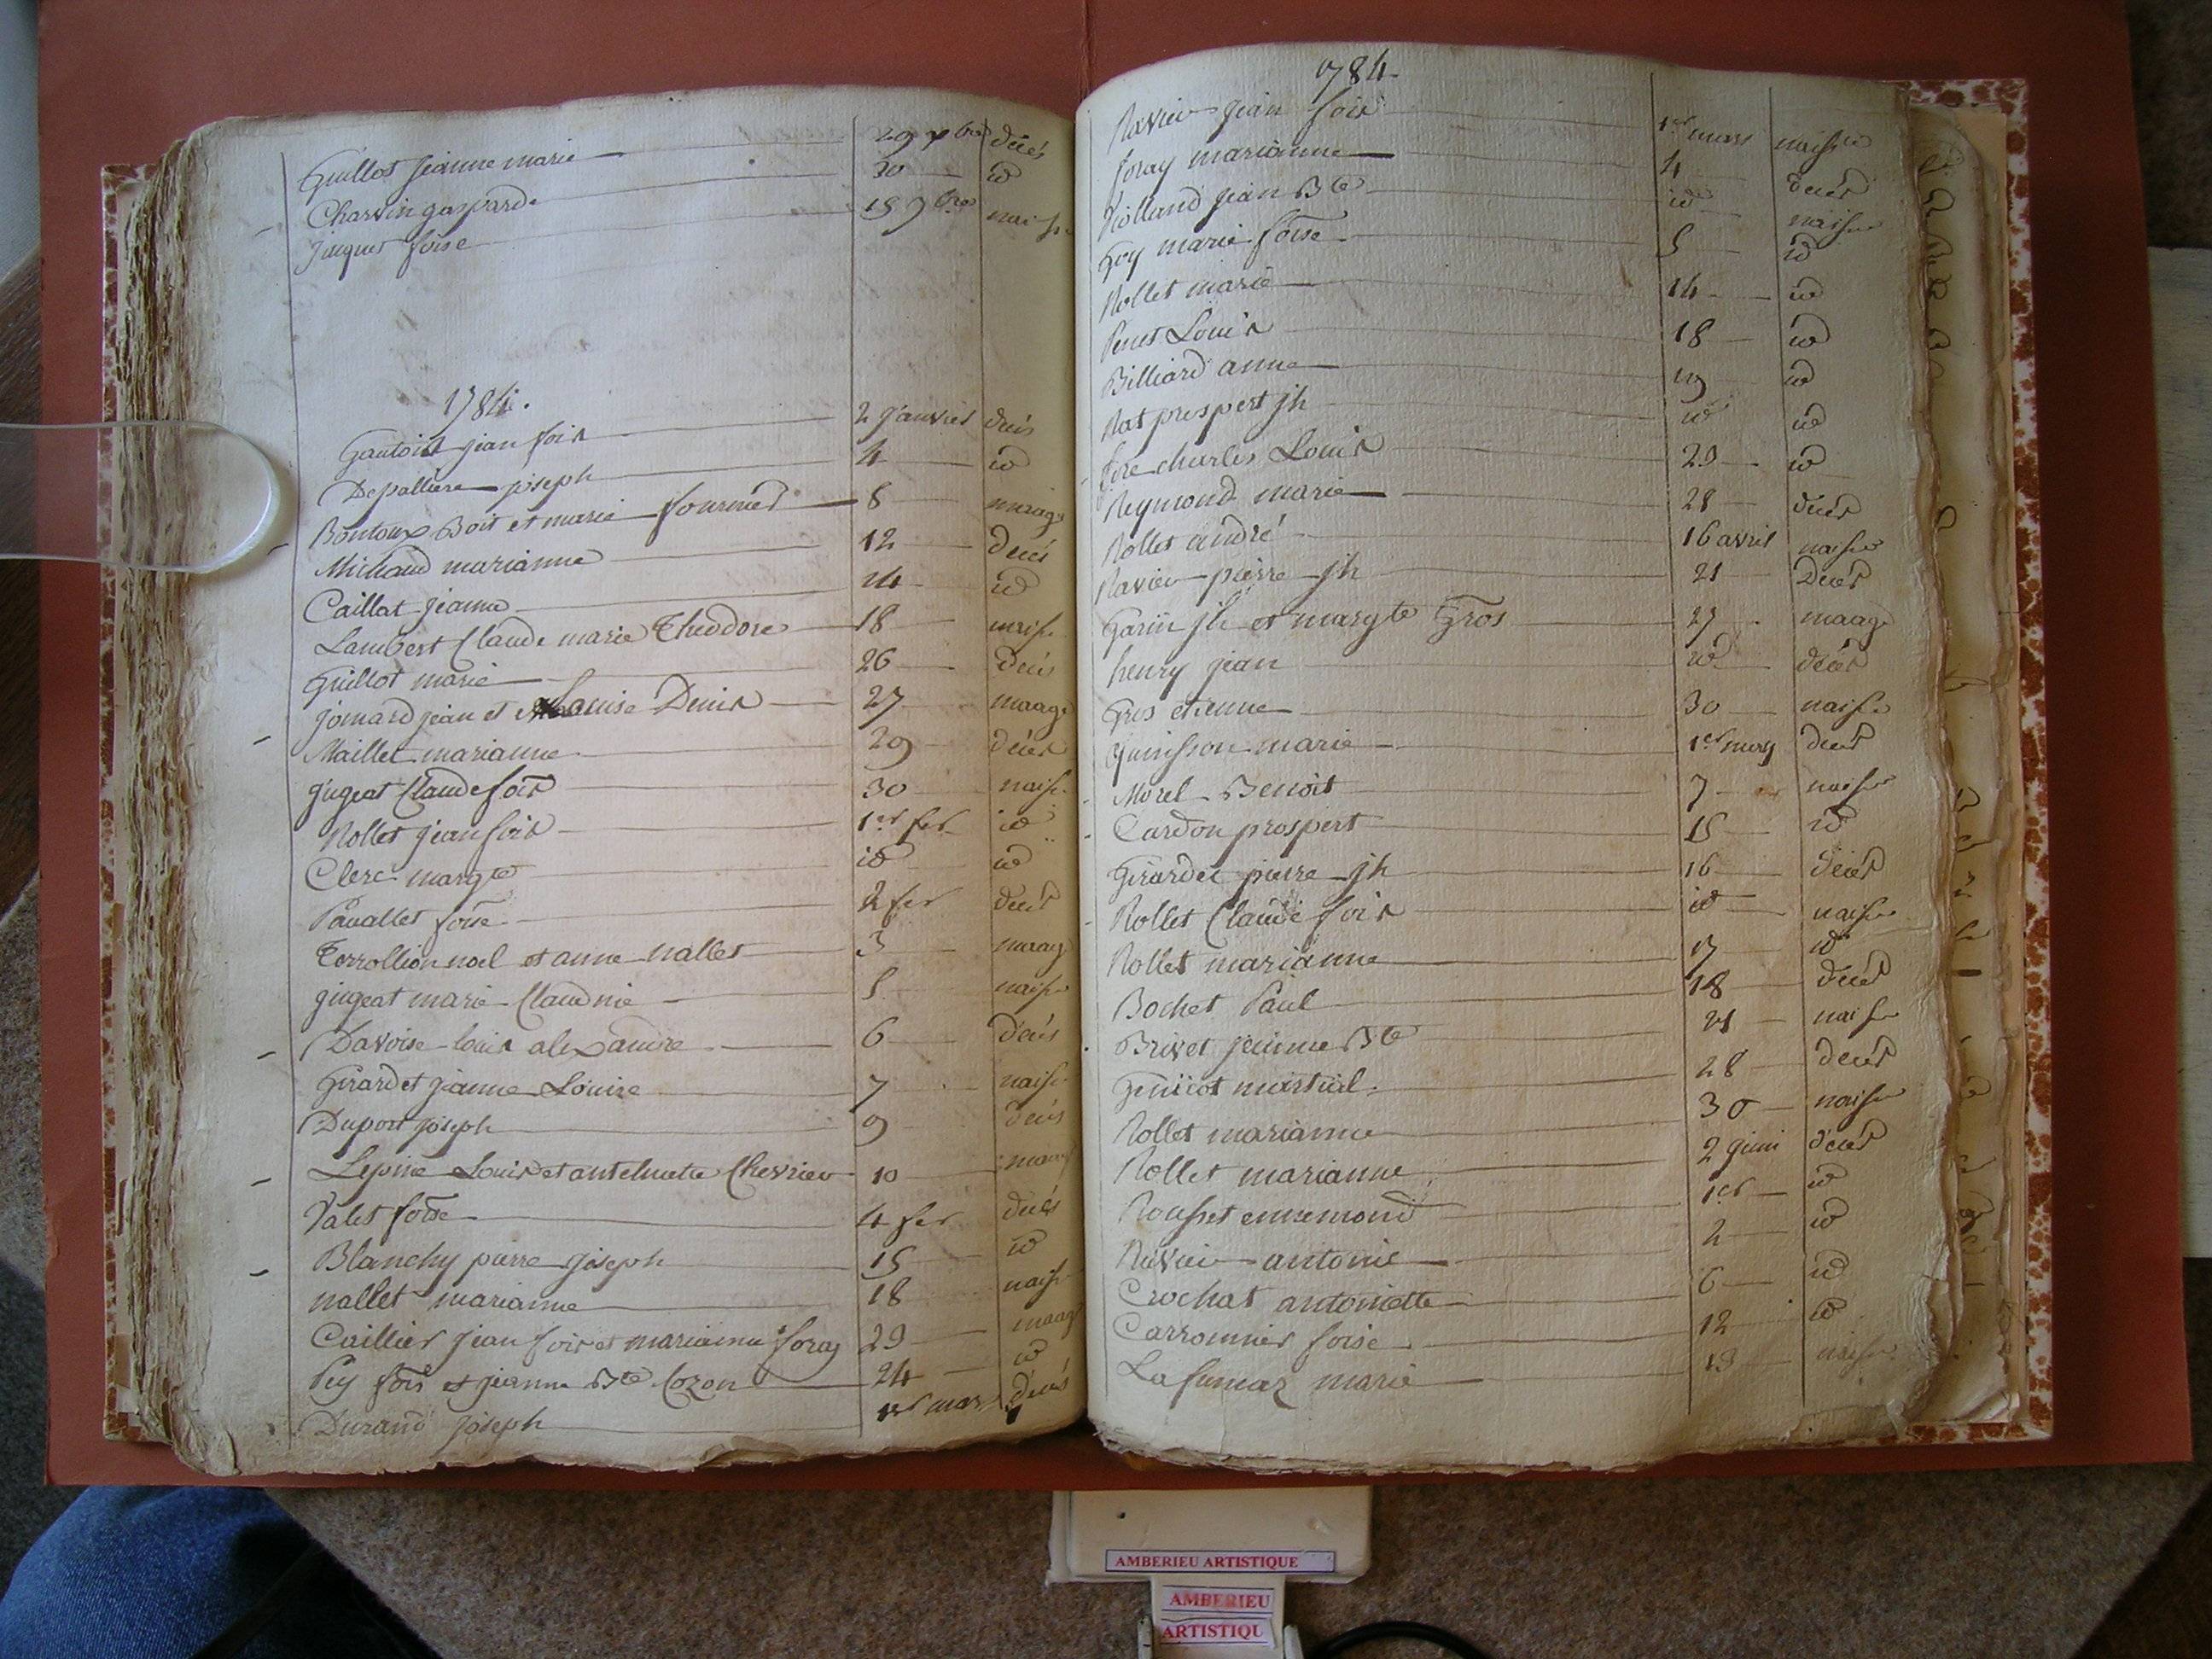 Guillot jeanne marie 29 xbre décés
Charvin gaspard 30 id
jaques foise 15 7bre naisse
1784.
Gautois jean fois 2 janvier décés
Depalliere joseph 4 id
Bontoux Boit et marie fournier 8 maage
Michaud marianne 12 décés
Caillat jeanne 14 id
Lambert Claude marie Theodore 18 naisse
Guillot marie 26 décés
jomard jean et Louise Denis 27 maage
Maillet marianne 29 décés
jugeat Claude fois 30 naisse
Rollet jean fois 1er fer id
Clerc margte id id
Pavallet foise 2 fer décés
Terrollion noel et anne nallet 3 maage
jugeat marie Claudnie 5 naisse
Davoise louis alexandre 6 décés
Girardet jeanne Louise 7 naisse
Duport joseph 9 décés
Lepine Louis et antelmette Chevrier 10 maage
Valet foise 4 fer décés
Blanchy pierre joseph 15 id
nallet marianne 18 naisse
Caillier jean fois et marianne foray 23 maage
Pey fois et jeanne Bte Cozon 24 id
Durand joseph 1er mars décés
1784.
Ravier jean fois 1er mars naisse
foray marianne 4 décés
Volland jean Bte id naisse
Goy marie foise 5 id
Rollet marie 14 id
Louis 18 id
Billiard anne 19 id
Rat prospert jh id id
charles Louis 23 id
Reymond marie 28 décés
Rollet andré 16 avril naisse
Ravier pierre jh 21 Décés
Garin jh et margte Gros 27 maage
henry jean id décés
Gros etienne 30 naisse
Quinsson marie 1er may décés
Morel Benoit 7 naisse
Cardon prospert 15 id
Girardet pierre jh 16 décés
Rollet Claude fois id naisse
Rollet marianne 17 id
Bochet Paul 18 décés
Brivet jeanne Bte 21 naisse
Genicot martial 28 décés
Rollet marianne 30 naisse
Rollet marianne 2 juin décés
Rousset ennemond 1er id
Ravier antoine 2 id
Crochat antoinette 6 id
Carronnier foise 12 id
Lafumaz marie 13 naisse
AMBERIEU ARTISTIQUE
AMBERIEU
ARTISTIQU